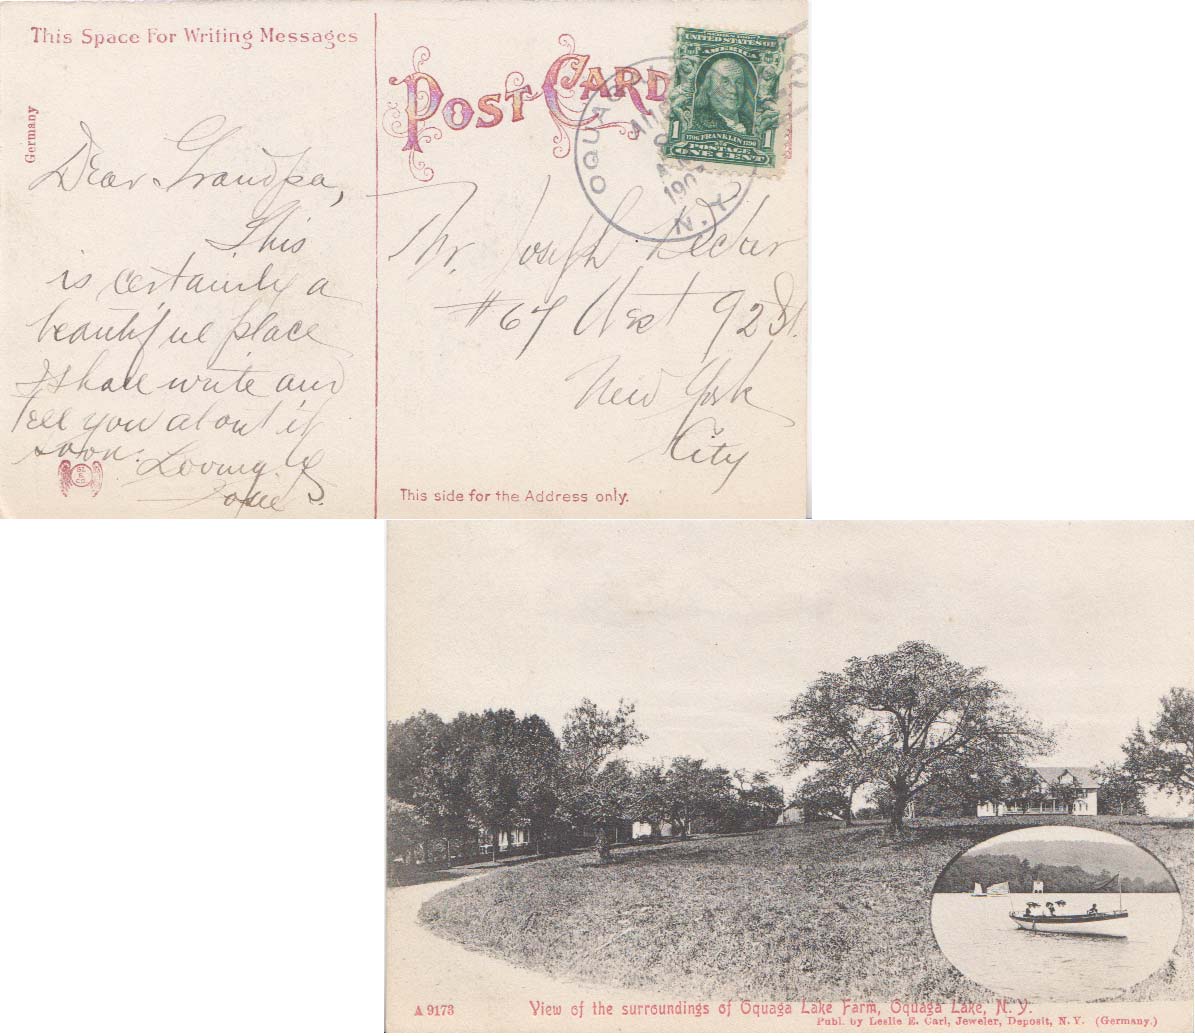 This Space For Writing Messages
Germany
Dear Grandpa,
This
is certainly a
beautiful place
I shall write and
tell you about it
soon. Loving
POST CARD
OQUAGA
AUG
190
N.Y.
SERIES 1902
UNITED STATES OF
AMERICA
1 1706 FRANKLIN 1790 1
POSTAGE
ONE CENT
Mr. Joseph Becker
#67 West 92 St.
New York
City
This side for the Address only.
A 9173
View of the surroundings of Oquaga Lake Farm, Oquaga Lake, N. Y.
Publ. by Leslie E. Carl, Jeweler, Deposit, N. Y. (Germany.)